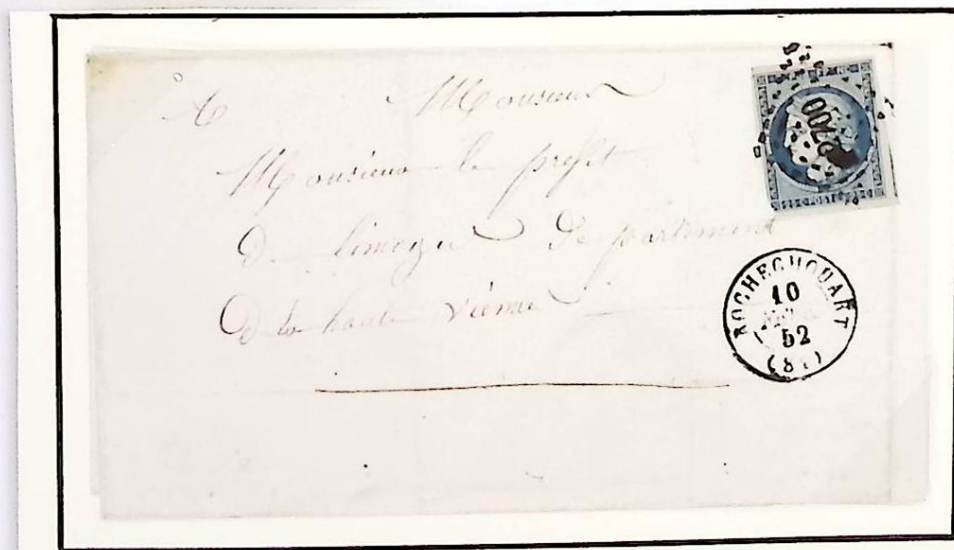 A Monsieur
Monsieur le préfet
de limoges département
de la haute vienne
2700
ROCHECHOUART
10
52